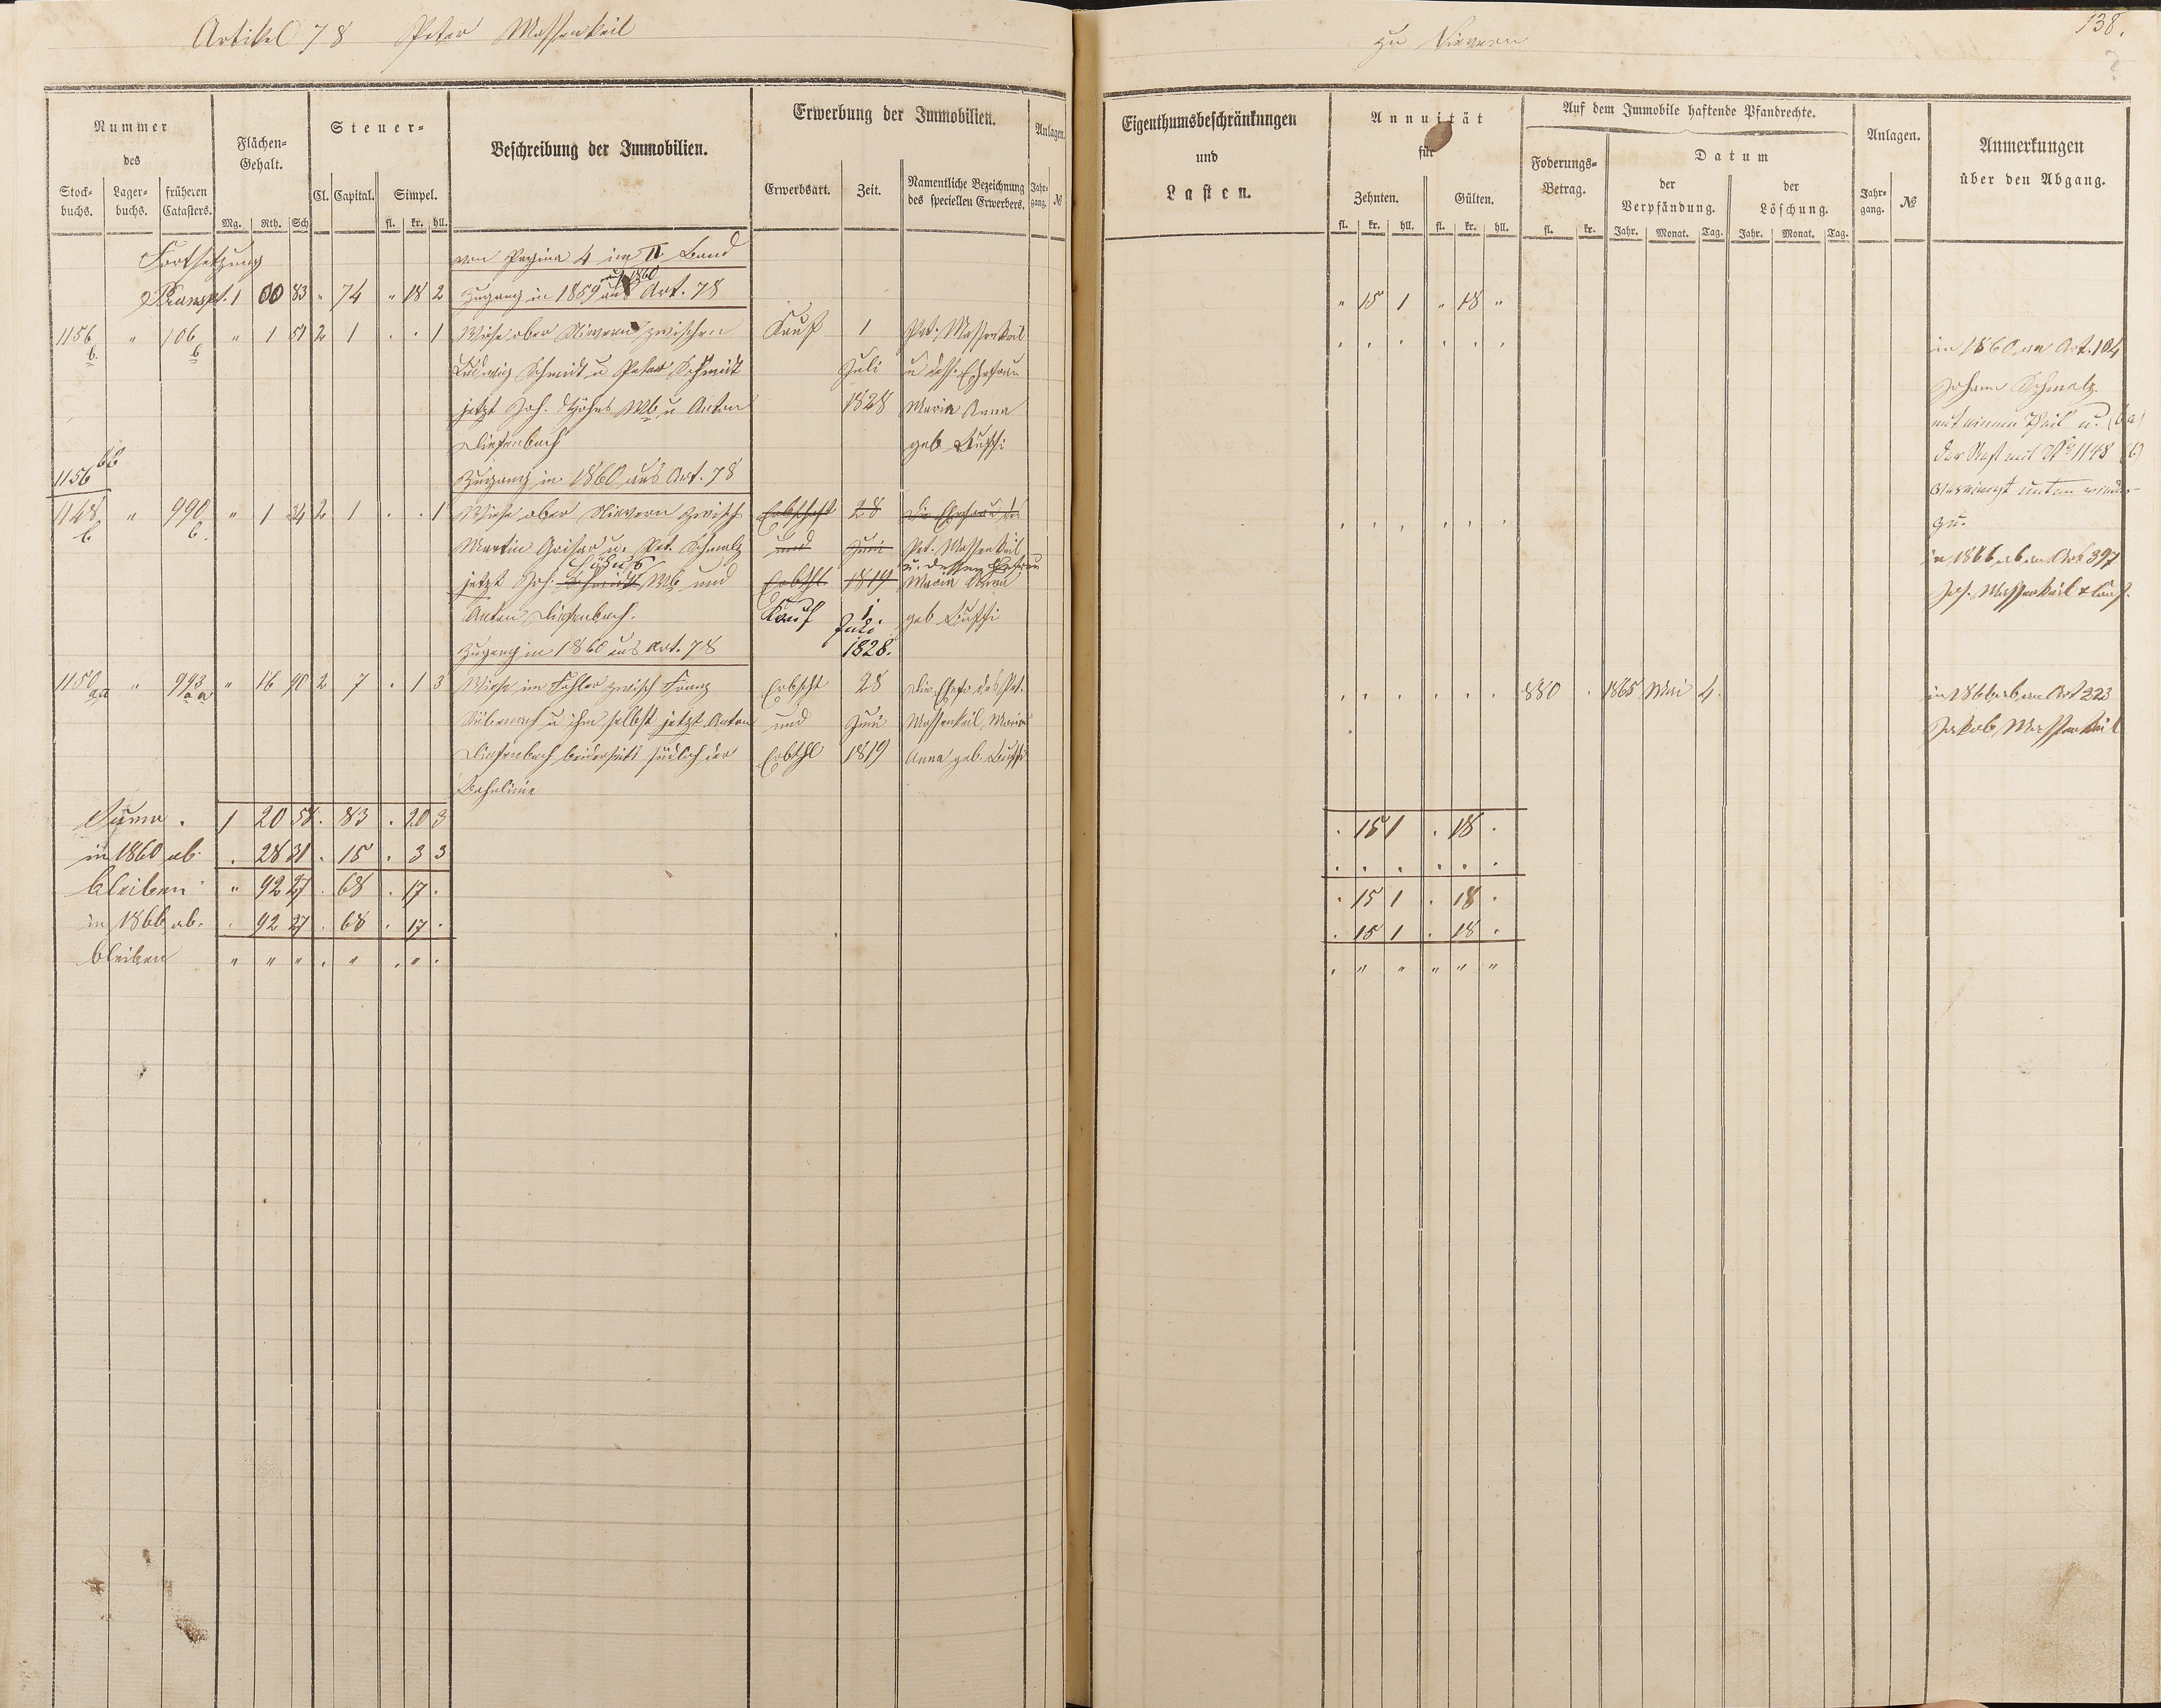 Artikel 78 Peter Massenkeil
zu Nievern
138.
Nummer
des
Stock-
buchs.
Lager-
buchs.
früheren
Catasters.
Flächen-
Gehalt.
Mg. Rth. Sch
Steuer-
Cl. Capital. Simpel.
fl. kr. hll.
Beschreibung der Immobilien.
Erwerbung der Immobilien.
Erwerbsart. Zeit.
Namentliche Bezeichnung
des speciellen Erwerbers.
Anlagen.
Jahr-
gang. №
Eigenthumsbeschränkungen
und
Lasten.
Annuität
für
Zehnten. Gülten.
fl. kr. hll. fl. kr. hll.
Auf dem Immobile haftende Pfandrechte.
Foderungs-
Betrag.
fl. kr.
Datum
der
Verpfändung.
der
Löschung.
Jahr. Monat. Tag. Jahr. Monat. Tag.
Anlagen.
Jahr-
gang. №
Anmerkungen
über den Abgang.
Fortsetzung von Pagina 4 im II Band
Transpt. 1 00 83 " 74 " 18 2 Zugang in 1859 aus Art. 78 " 15 1 " 18 "
auf 1860
1156 b " 106 b " 1 51 2 1 . . 1 Wiese ober Nievern zwischen Kauf 1 Pet. Massenkeil
Ludwig Schmidt u Peter Schmidt Juli u dess. Ehefrau
jetzt Joh. Wb u Anton 1828 Maria Anna
Diefenbach geb
Zugang in 1860 aus Art. 78
in 1860 an Art. 104
Johann Schmalz
mit einem Theil u. (ba)
der Rest mit No 1148 (b)
unten
zu.
1156 bb
1148 b " 990 b. " 1 34 2 1 . . 1 Wiese ober Nievern zwisch Erbschaft 28 die Ehefrau des
Martin u. Pet. Schmalz und Juni Pet. Massenkeil
u. dessen Ehefrau
jetzt Joh. Schmidt Wb und Erbthl. 1819 Maria Anna
Anton Diefenbach. Kauf 1 geb
Juli
Zugang in 1860 aus Art. 78 1828.
in 1866 ab an Art 397
Jos. Massenkeil
1150 aa " 993 aa " 16 90 2 7 . 1 3 Wiese im zwisch Franz Erbscht 28 Die Ehefr des Pet.
u ihm selbst jetzt Anton und Juni Massenkeil Maria
Diefenbach beiderseits südlich der Erbthl 1819 Anna geb.
Bahnlinie
880 . 1865 Mai 4.
in 1866 ab an Art 223
Jakob Massenkeil
Suma . 1 20 58 . 83 . 20 3 . 15 1 . 18 .
in 1860 ab. . 28 31 . 15 . 3 3 . . . . . .
bleiben " 92 27 . 68 . 17 . . 15 1 . 18 .
in 1866 ab. . 92 27 . 68 . 17 . . 15 1 . 18 .
bleiben " " " . " . " . . " " " " "